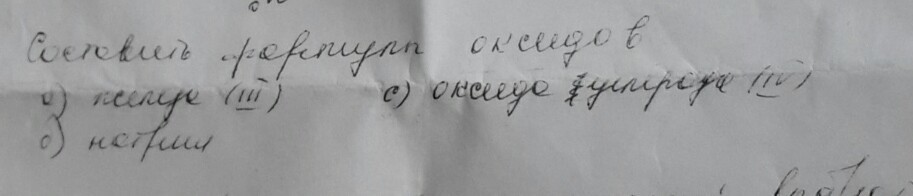 Составить формулы оксидов
а) железа (III) с) оксида углерода (IV)
б) натрия